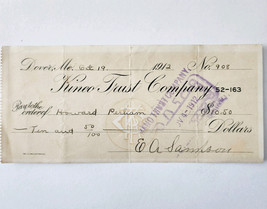 Dover, Me. Feb 19 1912 No. 908
Kineo Trust Company 52-163
Pay to the order of Howard $10.50
Ten and 50/100 Dollars
E A Sampson